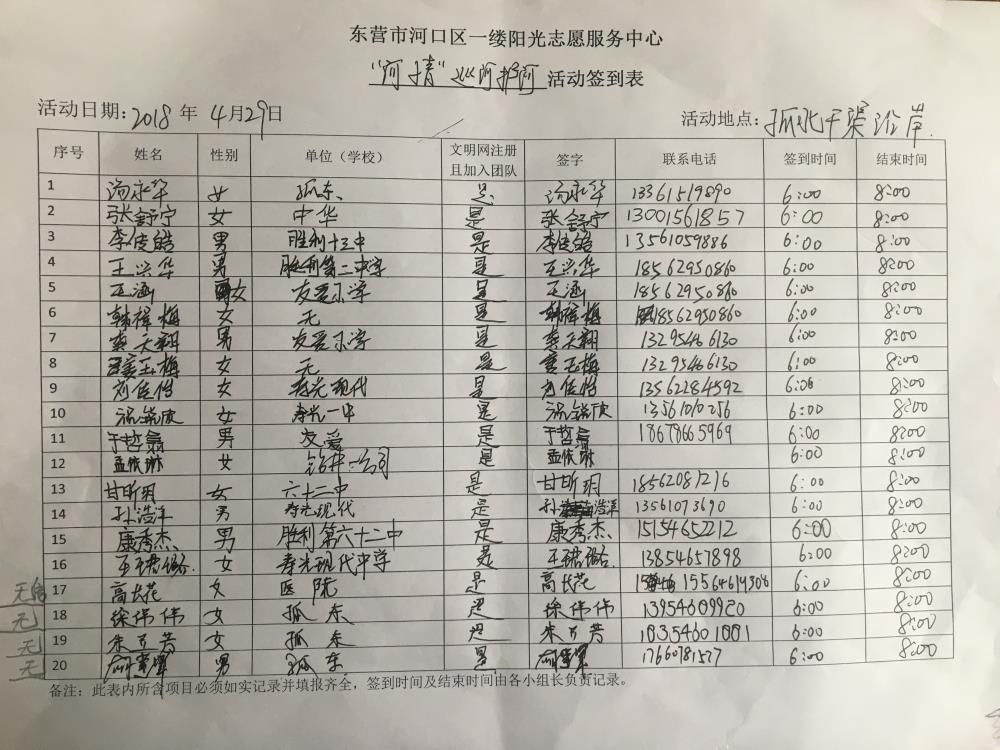 东营市河口区一缕阳光志愿服务中心
“河情”巡河护河 活动签到表
活动日期: 2018 年 4月29日 活动地点: 孤北干渠沿岸.
序号 姓名 性别 单位（学校） 文明网注册且加入团队 签字 联系电话 签到时间 结束时间
1 汤永华 女 孤东、 是 汤永华 13361519890 6:00 8:00
2 张舒宁 女 中华 是 张舒宁 13001561857 6:00 8:00
3 李俊皓 男 胜利十三中 是 李俊皓 13561059886 6:00 8:00
4 王兴华 男 胜利第二中学 是 王兴华 18562950860 6:00 8:00
5 王涵 女 友爱小学 是 王涵 18562950860 6:00 8:00
6 韩梅 女 无 是 韩梅 18562950860 6:00 8:00
7 天翔 男 友爱小学 是 天翔 13295466130 6:00 8:00
8 玉梅 女 无 是 玉梅 13295466130 6:00 8:00
9 刘佳怡 女 寿光现代 是 刘佳怡 13562284592 6:00 8:00
10 女 寿光一中 是 13561010256 6:00 8:00
11 于哲 男 友爱 是 于哲 18678665969 6:00 8:00
12 孟依琳 女 钻井一公司 是 孟依琳 6:00 8:00
13 甘昕玥 女 六十二中 是 甘昕玥 18562087216 6:00 8:00
14 孙浩洋 男 寿光现代 是 孙浩洋 13561073690 6:00 8:00
15 康秀杰 男 胜利第六十二中 是 康秀杰 15154652212 6:00 8:00
16 王 女 寿光现代中学 是 王 13854657898 6:00 8:00
无 17 高长花 女 医院 是 高长花 15564619306 6:00 8:00
无 18 徐伟伟 女 孤东 是 徐伟伟 13954609920 6:00 8:00
无 19 朱万芳 女 孤东 是 朱万芳 18354601881 6:00 8:00
无 20 男 孤东 是 17660781577 6:00 8:00
备注：此表内所含项目必须如实记录并填报齐全，签到时间及结束时间由各小组长负责记录。